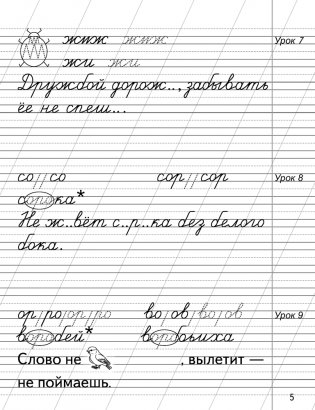 жжж жжж Урок 7
жи жи
Дружбой дорож.., забывать
ее не спеш...
со//со сор//сор Урок 8
сорока*
Не ж..вёт с..р..ка без белого
бока.
ор//ро/ор//ро во/ов/во/ов Урок 9
воробей* воробьиха
Слово не , вылетит —
не поймаешь.
5